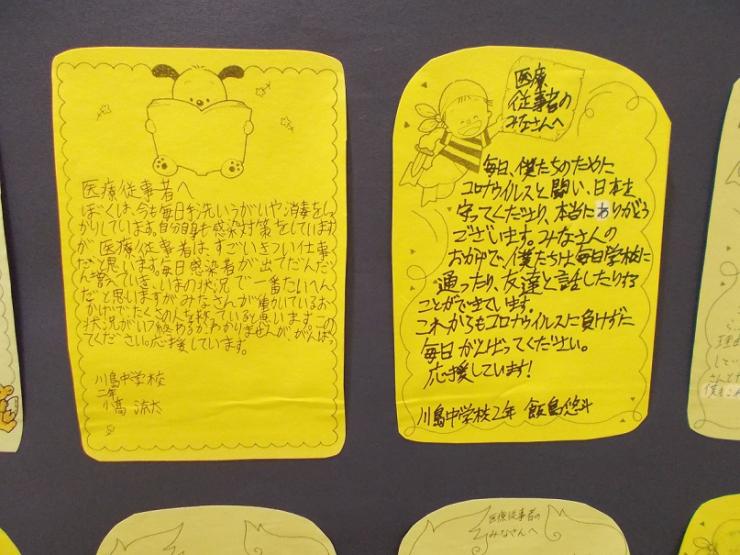 医療従事者へ
ぼくは、今も毎日手洗いうがいや消毒をしっ
かりしています。自分自身も感染対策をしています
が医療従事者は、すごいきつい仕事
だと思います。毎日感染者が出てだんだ
ん増えていき、いまの状況で一番たいへん
だと思いますがみなさんが働いているお
かげでたくさんの人を救っていると思います。この
状況がいつ終わるかわかりませんが、がんばっ
てください。応援しています。
川島中学校
二年
小高 流太
医療
従事者の
みなさんへ
毎日、僕たちのために
コロナウイルスと闘い、日本を
守ってくださり、本当にありがとう
ございます。みなさんの
おかげで、僕たちは毎日学校に
通ったり、友達と話したりする
ことができています。
これからもコロナウイルスに負けずに
毎日がんばってください。
応援しています!
川島中学校2年 飯島悠斗
医療従事者の
みなさんへ